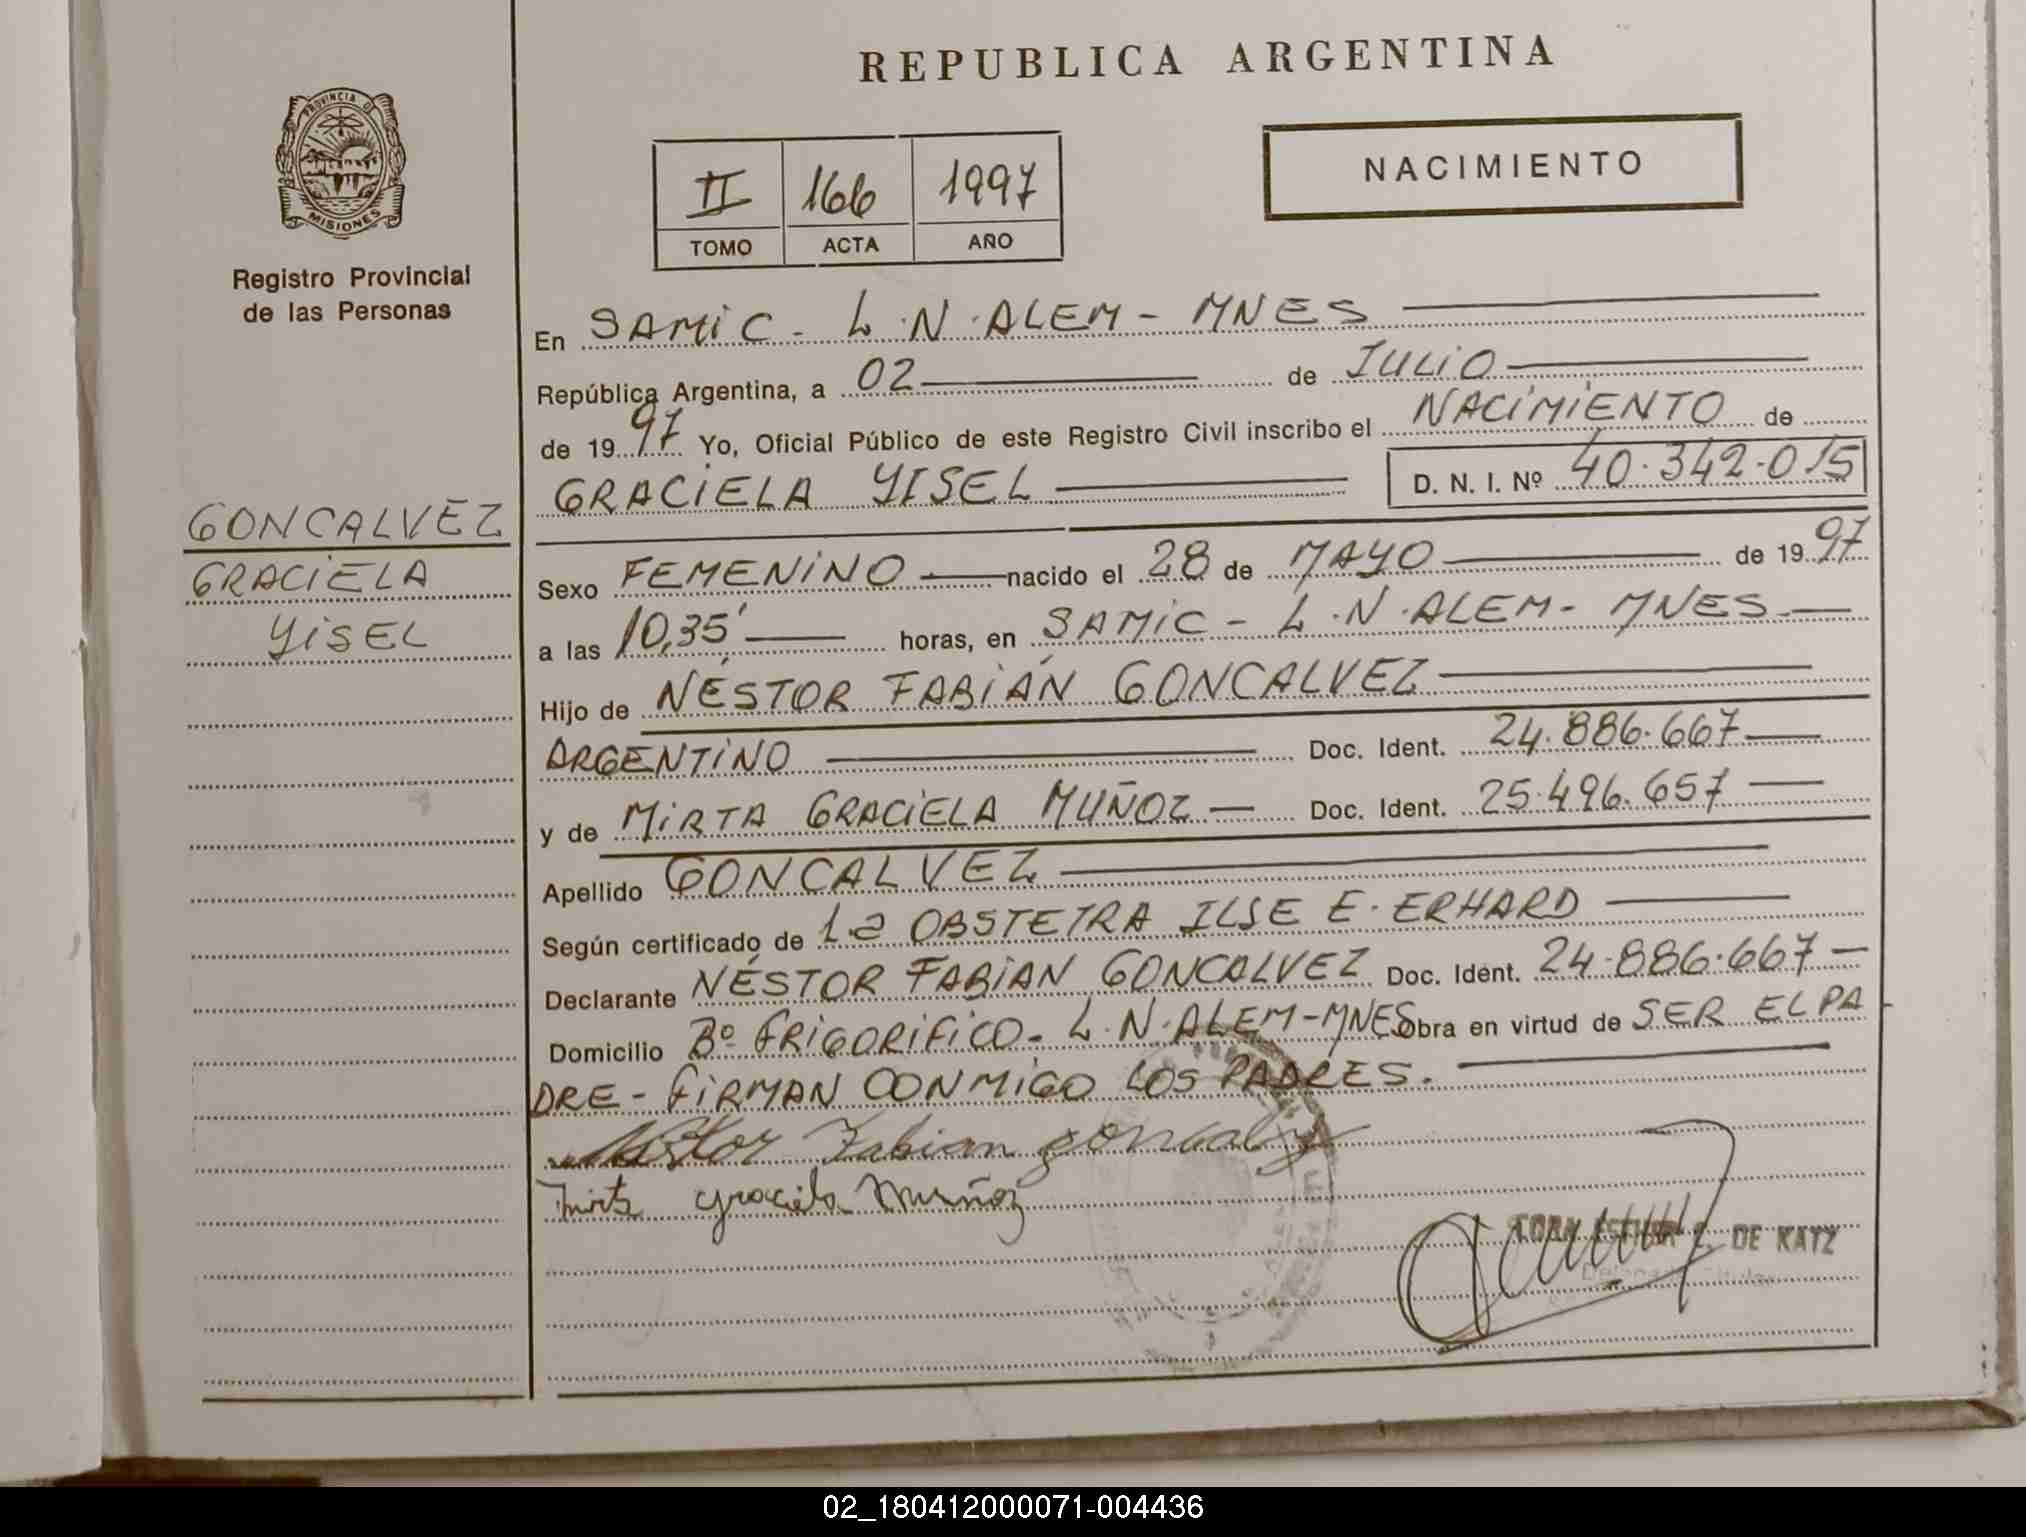 REPUBLICA ARGENTINA
PROVINCIA D
MISIONES
Registro Provincial
de las Personas
II 166 1997
TOMO ACTA AÑO
NACIMIENTO
GONCALVEZ
GRACIELA
YISEL
En SAMIC - L.N.ALEM - MNES
República Argentina, a 02 de JULIO
de 1997 Yo, Oficial Público de este Registro Civil inscribo el NACIMIENTO de
GRACIELA YISEL D. N. I. Nº 40.342.015
Sexo FEMENINO nacido el 28 de MAYO de 1997
a las 10,35' horas, en SAMIC - L.N.ALEM - MNES
Hijo de NÉSTOR FABIÁN GONCALVEZ
ARGENTINO Doc. Ident. 24.886.667
y de MIRTA GRACIELA MUÑOZ Doc. Ident. 25.496.657
Apellido GONCALVEZ
Según certificado de La OBSTETRA ILSE E. ERHARD
Declarante NÉSTOR FABIAN GONCALVEZ Doc. Ident. 24.886.667
Domicilio Bº FRIGORIFICO - L.N.ALEM - MNES Obra en virtud de SER EL PA-
DRE - FIRMAN CONMIGO LOS PADRES.
Nestor Fabian goncalvz
Mirta graciela Muñoz
DE KATZ
02_180412000071-004436